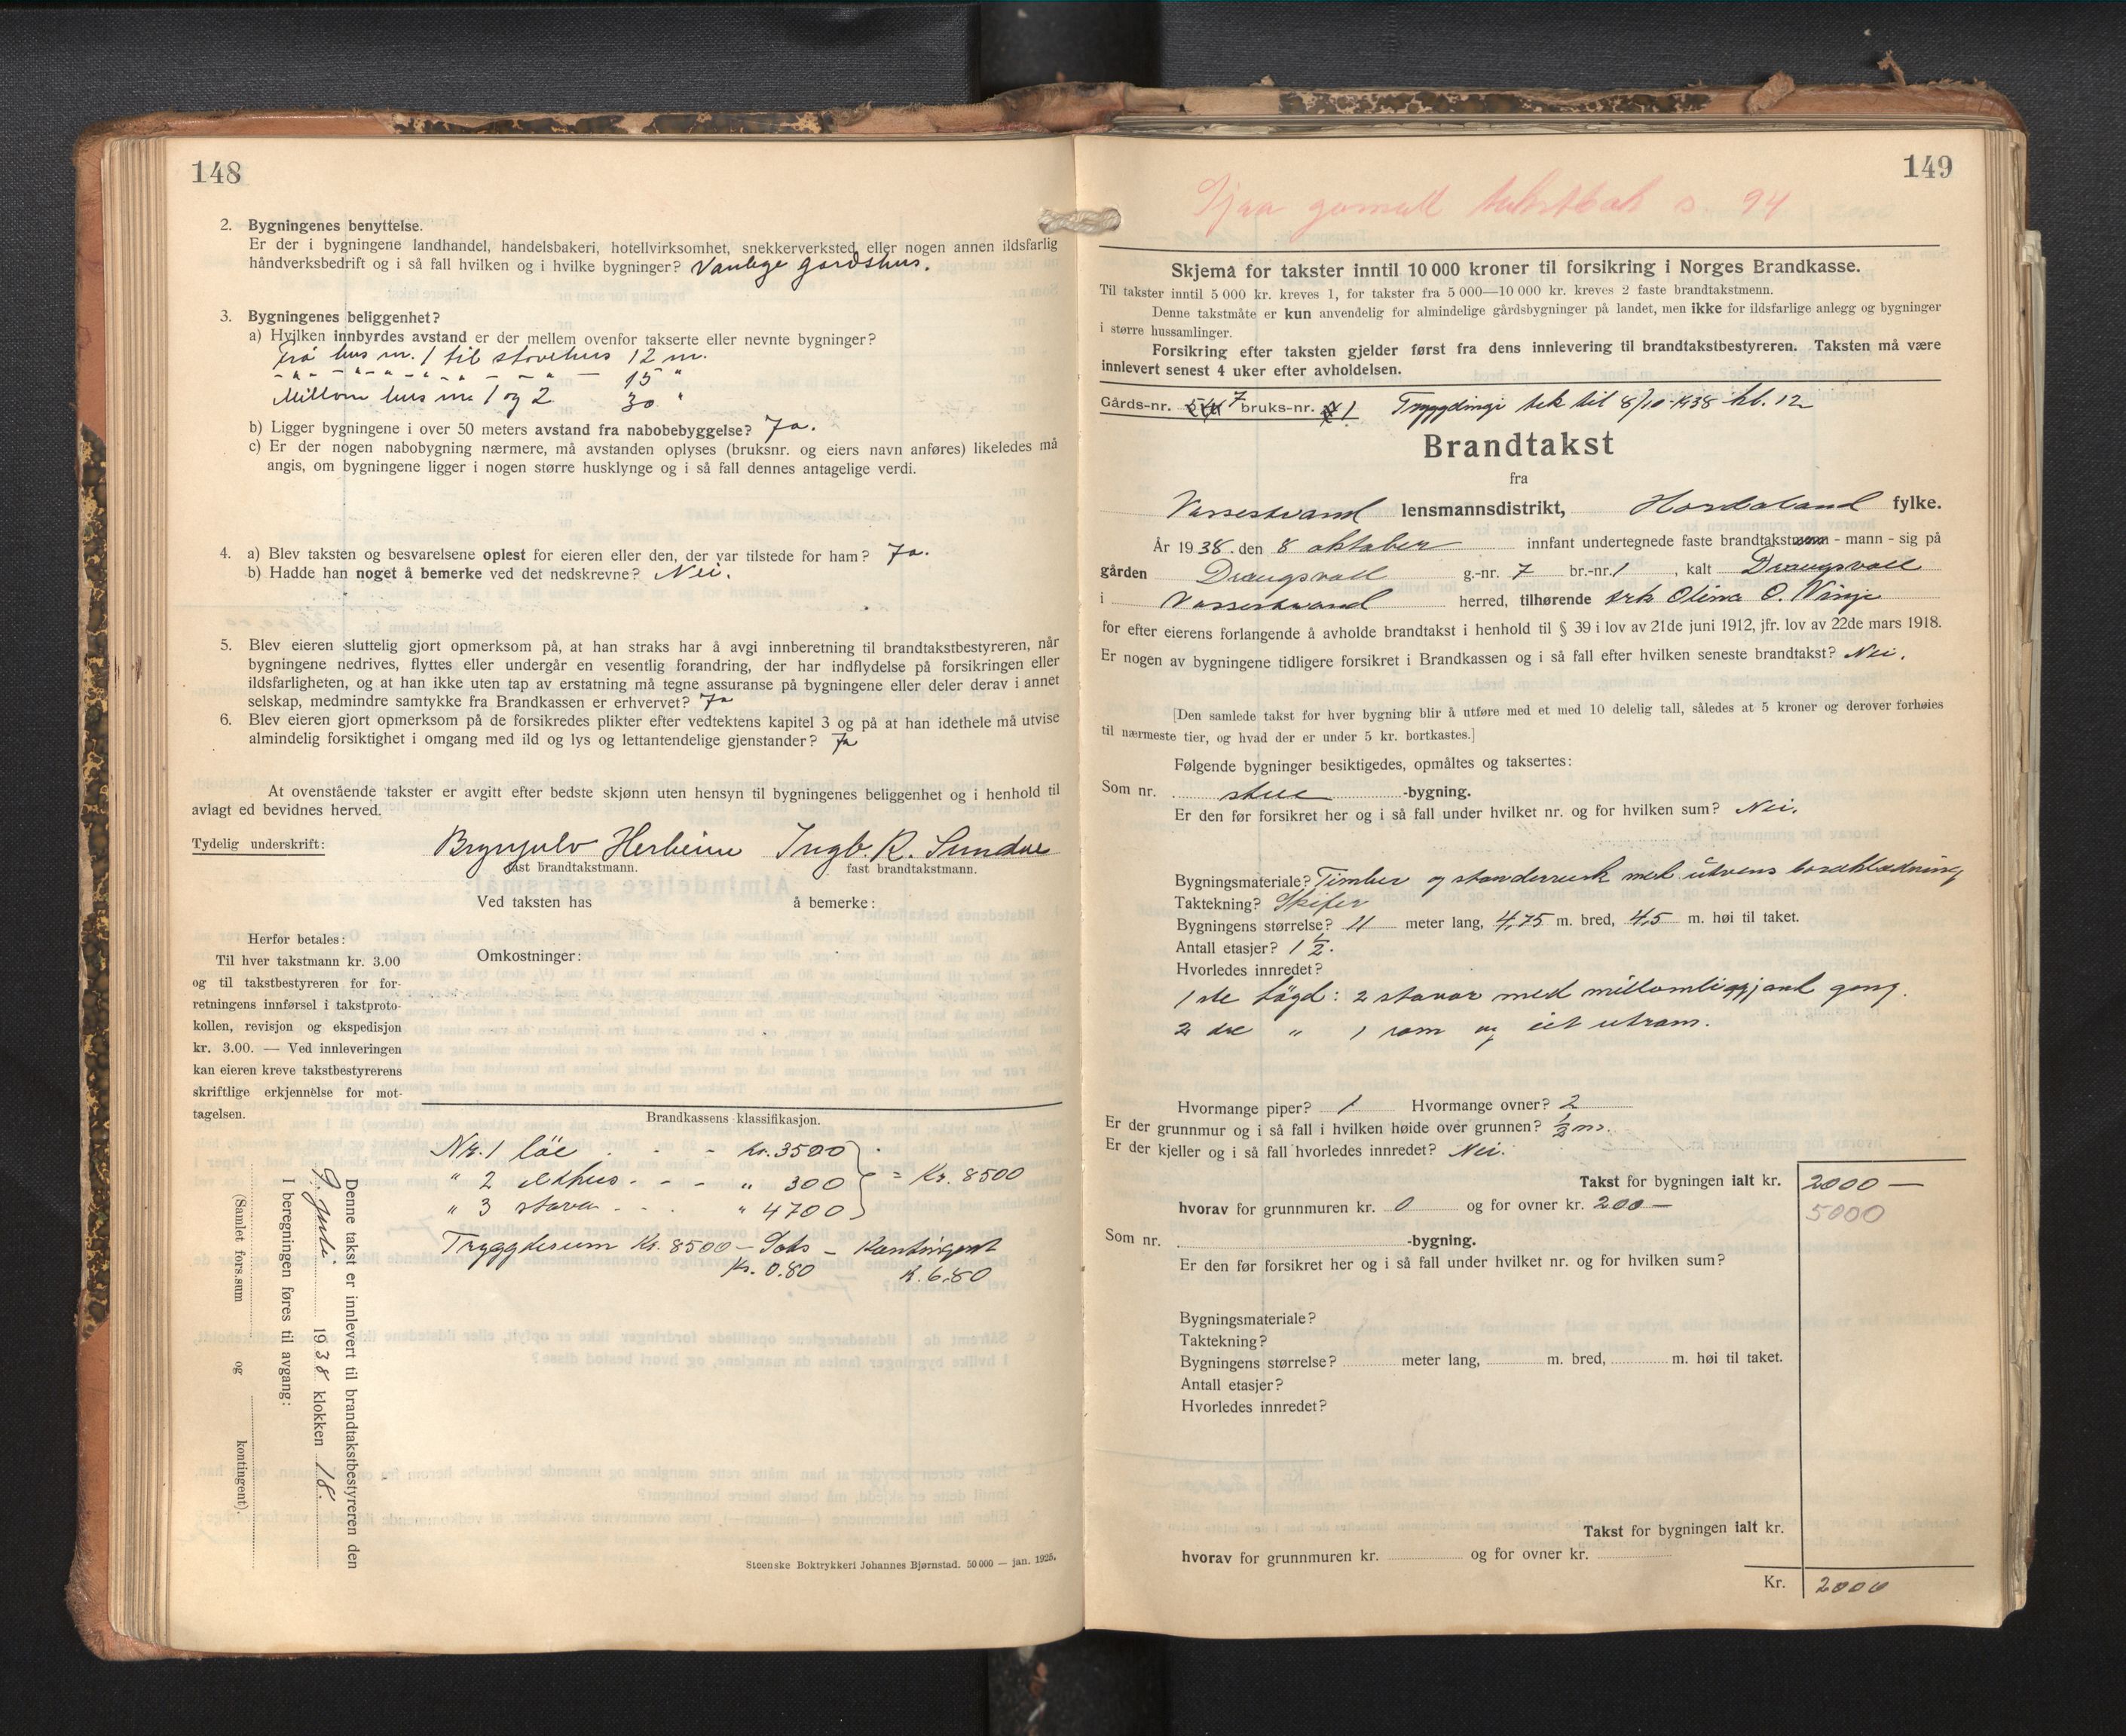 148
2. Bygningenes benyttelse.
Er der i bygningene landhandel, handelsbakeri, hotellvirksomhet, snekkerverksted eller nogen annen ildsfarlig
håndverksbedrift og i så fall hvilken og i hvilke bygninger? Vanlege gardshus.
3. Bygningenes beliggenhet?
a) Hvilken innbyrdes avstand er der mellem ovenfor takserte eller nevnte bygninger?
Frå hus nr. 1 til stovehus 12 m.
15 "
Millom hus nr 1 og 2 30 "
b) Ligger bygningene i over 50 meters avstand fra nabobebyggelse? Ja.
c) Er der nogen nabobygning nærmere, må avstanden oplyses (bruksnr. og eiers navn anføres) likeledes må
angis, om bygningene ligger i nogen større husklynge og i så fall dennes antagelige verdi.
4. a) Blev taksten og besvarelsene oplest for eieren eller den, der var tilstede for ham? Ja.
b) Hadde han noget å bemerke ved det nedskrevne? Nei.
5. Blev eieren sluttelig gjort opmerksom på, at han straks har å avgi innberetning til brandtakstbestyreren, når
bygningene nedrives, flyttes eller undergår en vesentlig forandring, der har indflydelse på forsikringen eller
ildsfarligheten, og at han ikke uten tap av erstatning må tegne assuranse på bygningene eller deler derav i annet
selskap, medmindre samtykke fra Brandkassen er erhvervet? Ja
6. Blev eieren gjort opmerksom på de forsikredes plikter efter vedtektens kapitel 3 og på at han idethele må utvise
almindelig forsiktighet i omgang med ild og lys og lettantendelige gjenstander? Ja
At ovenstående takster er avgitt efter bedste skjønn uten hensyn til bygningenes beliggenhet og i henhold til
avlagt ed bevidnes herved.
Tydelig underskrift: Brynjulv Herheim Ingb. R. Sundve
fast brandtakstmann. fast brandtakstmann.
Ved taksten has å bemerke:
Herfor betales:
Til hver takstmann kr. 3.00
og til takstbestyreren for for-
retningens innførsel i takstproto-
kollen, revisjon og ekspedisjon
kr. 3.00. — Ved innleveringen
kan eieren kreve takstbestyrerens
skriftlige erkjennelse for mot-
tagelsen.
Omkostninger:
Brandkassens klassifikasjon.
Nr. 1 löe - - kr. 3500
" 2 eldhus - - - " 300 = Kr. 8500
" 3 stova - . . " 4700
Tryggdesum Kr. 8500 – Sats – Kontingent
Kr. 0.80 k. 6.80
Denne takst er innlevert til brandtakstbestyreren den
9. juli 1938 klokken 18.
I beregningen føres til avgang:
(Samlet fors.sum og kontingent)
Steenske Boktrykkeri Johannes Bjørnstad. 50 000 — jan. 1925.
149
Sjaa gamall takstbok s. 94
Skjema for takster inntil 10 000 kroner til forsikring i Norges Brandkasse.
Til takster inntil 5 000 kr. kreves 1, for takster fra 5 000—10 000 kr. kreves 2 faste brandtakstmenn.
Denne takstmåte er kun anvendelig for almindelige gårdsbygninger på landet, men ikke for ildsfarlige anlegg og bygninger
i større hussamlinger.
Forsikring efter taksten gjelder først fra dens innlevering til brandtakstbestyreren. Taksten må være
innlevert senest 4 uker efter avholdelsen.
Gårds-nr. 7 bruks-nr. 1 Tryggdingi tek til 8/10 1938 kl. 12
Brandtakst
fra
Vossestrand lensmannsdistrikt, Hordaland fylke.
År 1938. den 8 oktober innfant undertegnede faste brandtakst - mann - sig på
gården Draugsvoll g.-nr. 7 br.-nr. 1, kalt Draugsvoll
i Vossestrand herred, tilhørende Olina O. Vinje
for efter eierens forlangende å avholde brandtakst i henhold til § 39 i lov av 21de juni 1912, jfr. lov av 22de mars 1918.
Er nogen av bygningene tidligere forsikret i Brandkassen og i så fall efter hvilken seneste brandtakst? Nei.
[Den samlede takst for hver bygning blir å utføre med et med 10 delelig tall, således at 5 kroner og derover forhøies
til nærmeste tier, og hvad der er under 5 kr. bortkastes.]
Følgende bygninger besiktigedes, opmåltes og taksertes:
Som nr. stue -bygning.
Er den før forsikret her og i så fall under hvilket nr. og for hvilken sum? Nei.
Bygningsmateriale? Timber og standerverk med utvens bordklædning
Taktekning? Skifer
Bygningens størrelse? 11 meter lang, 4,75 m. bred, 4,5 m. høi til taket.
Antall etasjer? 1 1/2.
Hvorledes innredet?
1 ste högd: 2 stovor med millomliggjand gong.
2 dre " 1 rom og eit utrom.
Hvormange piper? 1 Hvormange ovner? 2
Er der grunnmur og i så fall i hvilken høide over grunnen? 1/2 m.
Er der kjeller og i så fall hvorledes innredet? Nei.
Takst for bygningen ialt kr. 2000 —
hvorav for grunnmuren kr. 0 og for ovner kr. 200— 5000
Som nr. -bygning.
Er den før forsikret her og i så fall under hvilket nr. og for hvilken sum?
Bygningsmateriale?
Taktekning?
Bygningens størrelse? meter lang, m. bred, m. høi til taket.
Antall etasjer?
Hvorledes innredet?
Takst for bygningen ialt kr.
hvorav for grunnmuren kr. og for ovner kr.
Kr. 2000